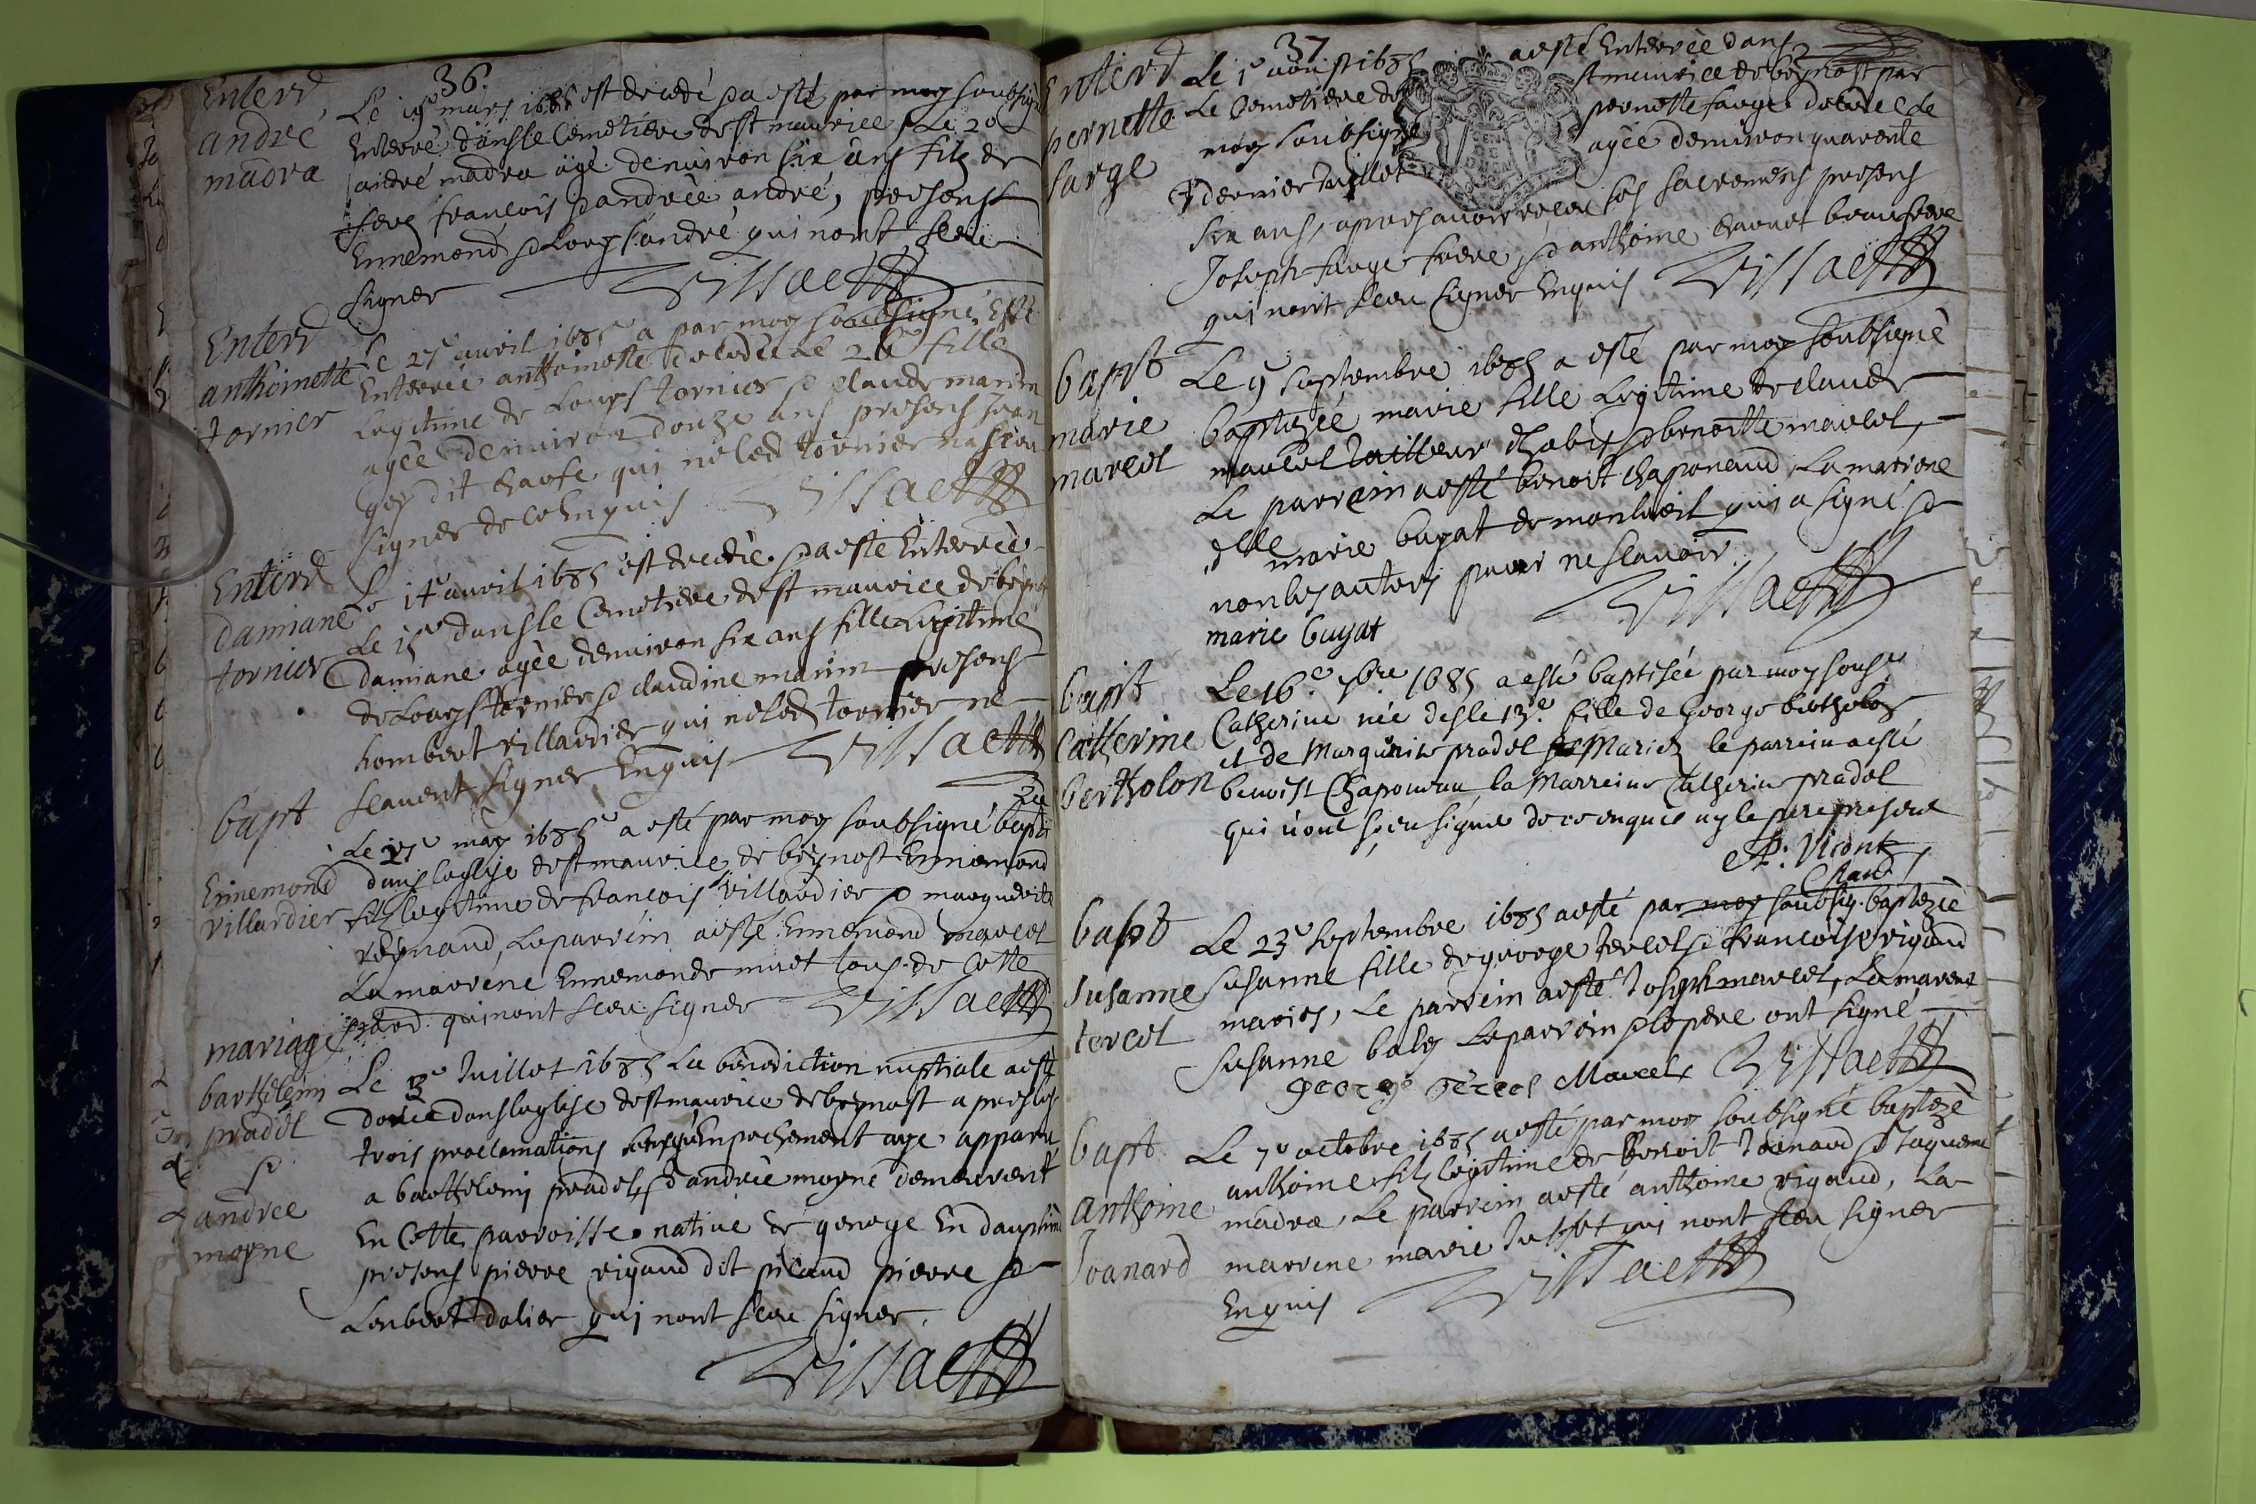 36.
Enterr
andré
madra
Le 19e mars 1685 est decedé & a esté par moy soubsigné
Enterré dans le Cemetiere de st maurice Le 20
andré madra agé denuiron six ans filz de
françois & andrée andré, presens
Ennemond & Louys andré qui nont sceu
signer Vissaet
Enterr
anthoinette
tornier
Le 27e auril 1685 a par moy soubsigné Esté
Enterrée anthoinette decedée le 26e fille
Legitime de Louys tornier & claude manin
agée denuiron douze ans presens Jean
goy dit chaose qui ne led tornier na sceu
signer de ce Enquis Vissaet
Enterr
damiane
tornier
Le 14e auril 1685 est decedée & a esté Enterrée
Le 15e dans le Cemetiere de st maurice de beynost
Damiane agée denuiron six ans fille Legitime
de Louys tornier & claudine manin presens
hombert villardier qui ne led tornier ne
scauent signer Enquis Vissaet
bapt
Ennemond
villardier
Le 27e may 1685 a esté par moy soubsigné baptizé
dans leglise de st maurice de beynost Ennemond
filz legitime de francois villardier & marguerite
reynaud, Le parrein a esté Ennemond marcel
La marrene Ennemonde muet tous de Cette
qui nont sceu signer Vissaet
mariage
barthelemi
pradel
&
andree
moyne
Le 3e Juillet 1685 La benediction nuptiale a esté
donée dans leglise de st maurice de beynost apres les
trois proclamations sans quEnpechement aye apparu
a barthelemi pradel & andrée moyne demeurent
En Cette parroisse natiue de genoge En dauphiné
presens pierre rigaud dit pilaud pierre &
Lonbert dalier qui nont sceu signer.
Vissaet
37
Enterr
pernette
farge
Le 1e aoust 1685 a esté Enterrée dans
Le Cemetiere de st maurice de beynost par
moy soubsigné pernette farge decedée le
dernier Juillet agée denuiron quarente
six ans, apres auoir receu ses sacremens presens
Joseph farge frere & anthoine charuet beaufrere
qui nont sceu signer Enquis Vissaet
bapt
marie
marcel
Le 9e septembre 1685 a esté par moy soubsigné
baptizée marie fille Legitime de claude
marcel tailleur dhabits & benoitte marcel,
Le parrein a esté benoit chaponaud, La marrene
delle marie buyat de monluel qui a signé &
non les autres pour ne scauoir.
marie buyat Vissaet
bapt
Catherine
bertholon
Le 16e 7bre 1685 a esté baptisée par moy sousé
Catherine née des le 13e. fille de George bertholon
et de Marguerite pradel Mariez le parrein a esté
benoist Chaponau, la Marreine Catherine pradel
qui n'ont sçeu signer de ce enquis ny le pere present
P: Vicont
bapt
Susanne
tercel
Le 23e septembre 1685 a esté par moy soubsig. baptizée
susanne fille de george tercel & francoise rigaud
mariés, Le parrein a esté Joseph marcel, La marene
Susanne baley Le parrein & le pere ont signé
george Tercel Marcel Vissaet
bapt
anthoine
Joanard
Le 7e octobre 1685 a esté par moy soubsigné baptizé
anthoine filz legitime de Benoit Joanard & Jaqueme
madra, Le parrein a esté anthoine rigaud, La
marrene marie Jusset qui nont sceu signer
Enquis Vissaet